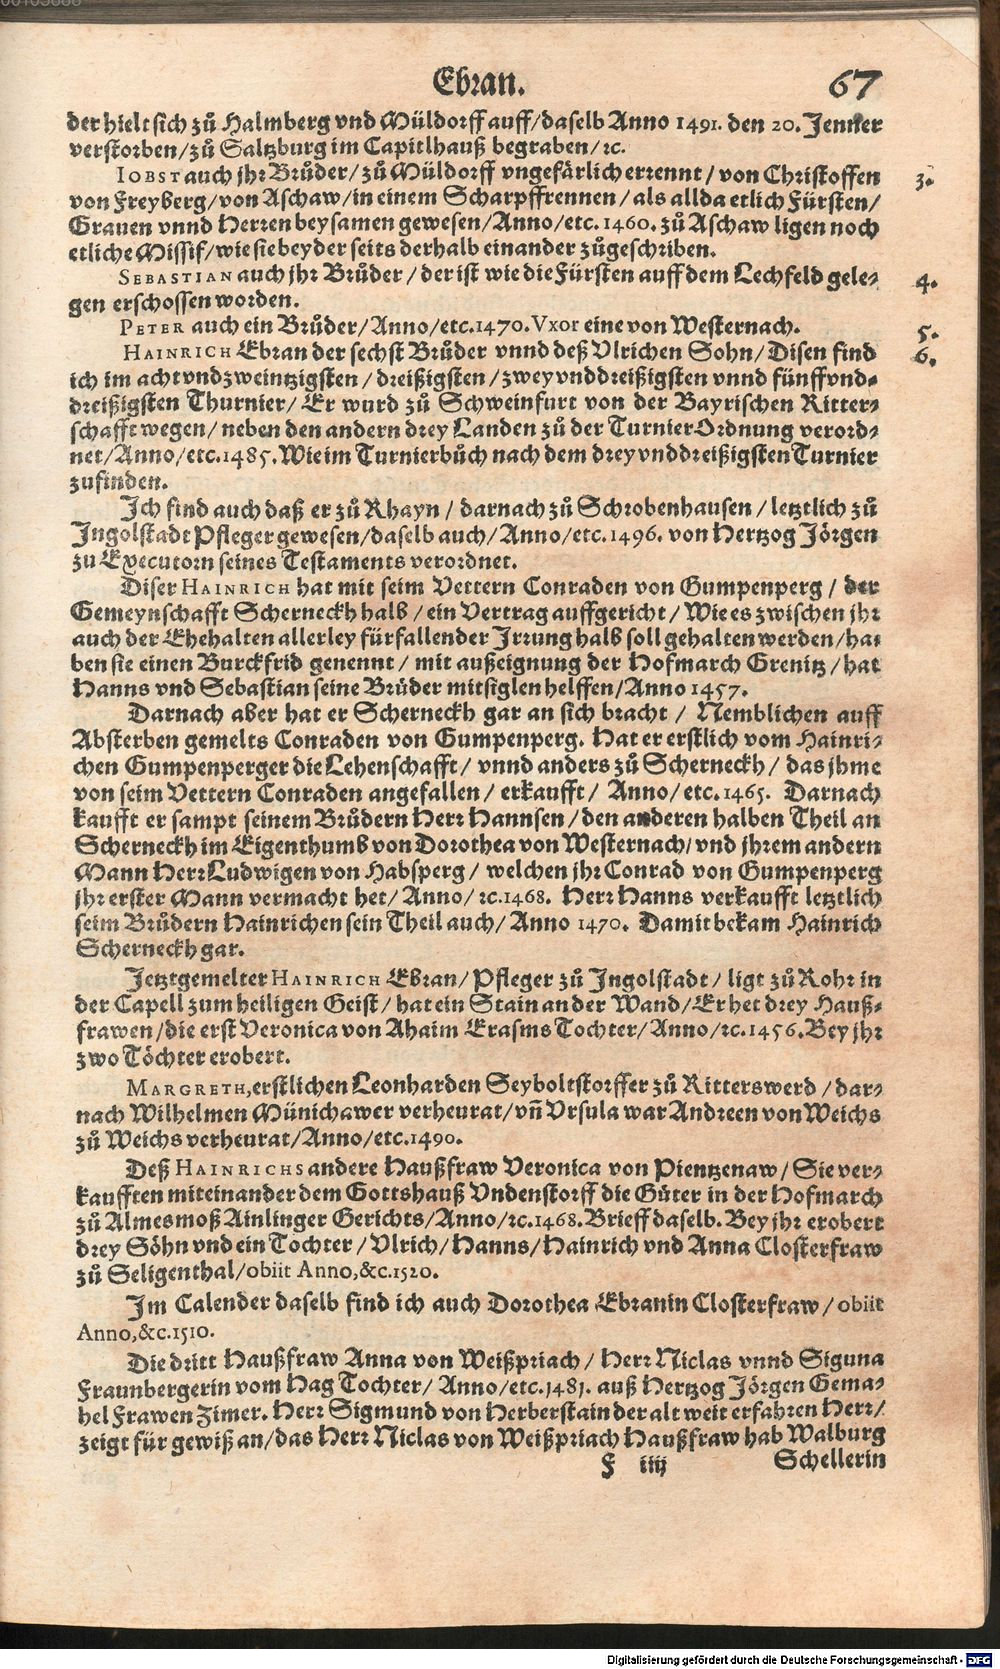 Ebran. 67
der hielt sich zů Halmberg vnd Müldorff auff/daselb Anno 1491. den 20. Jenner
verstorben/zů Saltzburg im Capitlhauß begraben/ꝛc.
IOBST auch jhr Brůder/zů Müldorff vngefärlich errennt/von Christoffen 3.
von Freyberg/von Aschaw/in einem Scharpffrennen/als allda etlich Fürsten/
Grauen vnnd Herren beysamen gewesen/Anno/etc. 1460. zů Aschaw ligen noch
etliche Missif/wie sie beyder seits derhalb einander zůgeschriben.
SEBASTIAN auch jhr Brůder/der ist wie die Fürsten auff dem Lechfeld gele- 4.
gen erschossen worden.
PETER auch ein Brůder/Anno/etc.1470. Vxor eine von Westernach. 5.
HAINRICH Ebran der sechst Brůder vnnd deß Vlrichen Sohn/Disen find 6.
ich im acht vnd zweintzigsten/dreißigsten/zwey vnd dreißigsten vnnd fünff vnd-
dreißigsten Thurnier/Er wurd zů Schweinfurt von der Bayrischen Ritter-
schafft wegen/neben den andern drey Landen zů der TurnierOrdnung verord-
net/Anno/etc.1485. Wie im Turnierbůch nach dem drey vnd dreißigsten Turnier
zufinden.
Ich find auch daß er zů Rhayn/darnach zů Schrobenhausen/letztlich zů
Ingolstadt Pfleger gewesen/daselb auch/Anno/etc.1496. von Hertzog Jörgen
zu Executorn seines Testaments verordnet.
Diser HAINRICH hat mit seim Vettern Conraden von Gumpenperg/der
Gemeynschafft Scherneckh halb/ein Vertrag auffgericht/Wie es zwischen jhr
auch der Ehehalten allerley fürfallender Irrung halb soll gehalten werden/ha-
ben sie einen Burckfrid genennt/mit außeignung der Hofmarch Grenitz/hat
Hanns vnd Sebastian seine Brůder mitsiglen helffen/Anno 1457.
Darnach aber hat er Scherneckh gar an sich bracht/Nemblichen auff
Absterben gemelts Conraden von Gumpenperg. Hat er erstlich vom Hainri-
chen Gumpenperger die Lehenschafft/vnnd anders zů Scherneckh/das jhme
von seim Vettern Conraden angefallen/erkaufft/Anno/etc.1465. Darnach
kaufft er sampt seinem Brůdern Herr Hannsen/den anderen halben Theil an
Scherneckh im Eigenthumb von Dorothea von Westernach/vnd jhrem andern
Mann Herr Ludwigen von Habsperg/welchen jhr Conrad von Gumpenperg
jhr erster Mann vermacht het/Anno/ꝛc.1468. Herr Hanns verkaufft letztlich
seim Brůdern Hainrichen sein Theil auch/Anno 1470. Damit bekam Hainrich
Scherneckh gar.
Jetztgemelter HAINRICH Ebran/Pfleger zů Ingolstadt/ligt zů Rohr in
der Capell zum heiligen Geist/hat ein Stain an der Wand/Er het drey Hauß-
frawen/die erst Veronica von Ahaim Erasms Tochter/Anno/ꝛc.1456. Bey jhr
zwo Töchter erobert.
MARGRETH, erstlichen Leonharden Seyboltstorffer zů Ritterswerd/dar-
nach Wilhelmen Münichawer verheurat/vñ Vrsula war Andreen von Weichs
zů Weichs verheurat/Anno/etc.1490.
Deß HAINRICHS andere Haußfraw Veronica von Pientzenaw/Sie ver-
kaufften miteinander dem Gottshauß Vndenstorff die Güter in der Hofmarch
zů Almesmoß Ainlinger Gerichts/Anno/ꝛc.1468. Brieff daselb. Bey jhr erobert
drey Söhn vnd ein Tochter/Vlrich/Hanns/Hainrich vnd Anna Closterfraw
zů Seligenthal/obiit Anno,&c.1520.
Im Calender daselb find ich auch Dorothea Ebranin Closterfraw/obiit
Anno,&c.1510.
Die dritt Haußfraw Anna von Weißpriach/Herr Niclas vnnd Siguna
Fraunbergerin vom Hag Tochter/Anno/etc.1481. auß Hertzog Jörgen Gema-
hel Frawen Zimer. Herr Sigmund von Herberstain der alt weit erfahren Herr/
zeigt für gewiß an/das Herr Niclas von Weißpriach Haußfraw hab Walburg
F iiij Schellerin
Digitalisierung gefördert durch die Deutsche Forschungsgemeinschaft - DFG